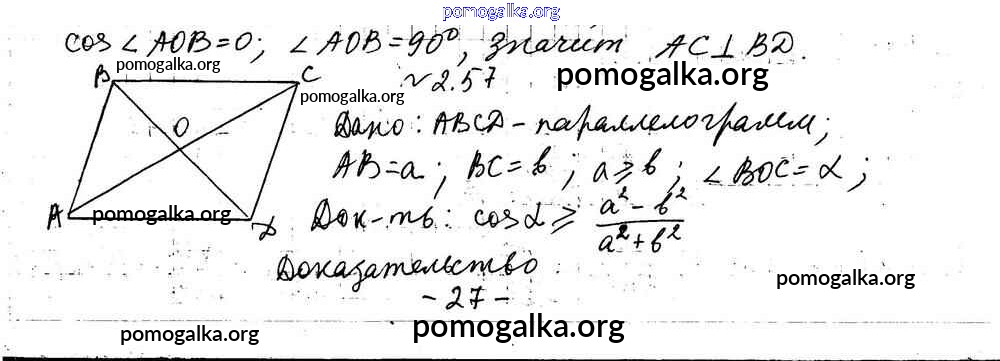 pomogalka.org
cos ∠ AOB = 0; ∠ AOB = 90°, значит AC ⊥ BD.
pomogalka.org
B C ~ 2.57 pomogalka.org
pomogalka.org
O Дано: ABCD - параллелограмм;
AB = a; BC = b; a ≥ b; ∠ BOC = α;
A pomogalka.org D Док-ть: cos α ≥ (a² - b²)/(a² + b²)
Доказательство
pomogalka.org
- 27 -
pomogalka.org pomogalka.org